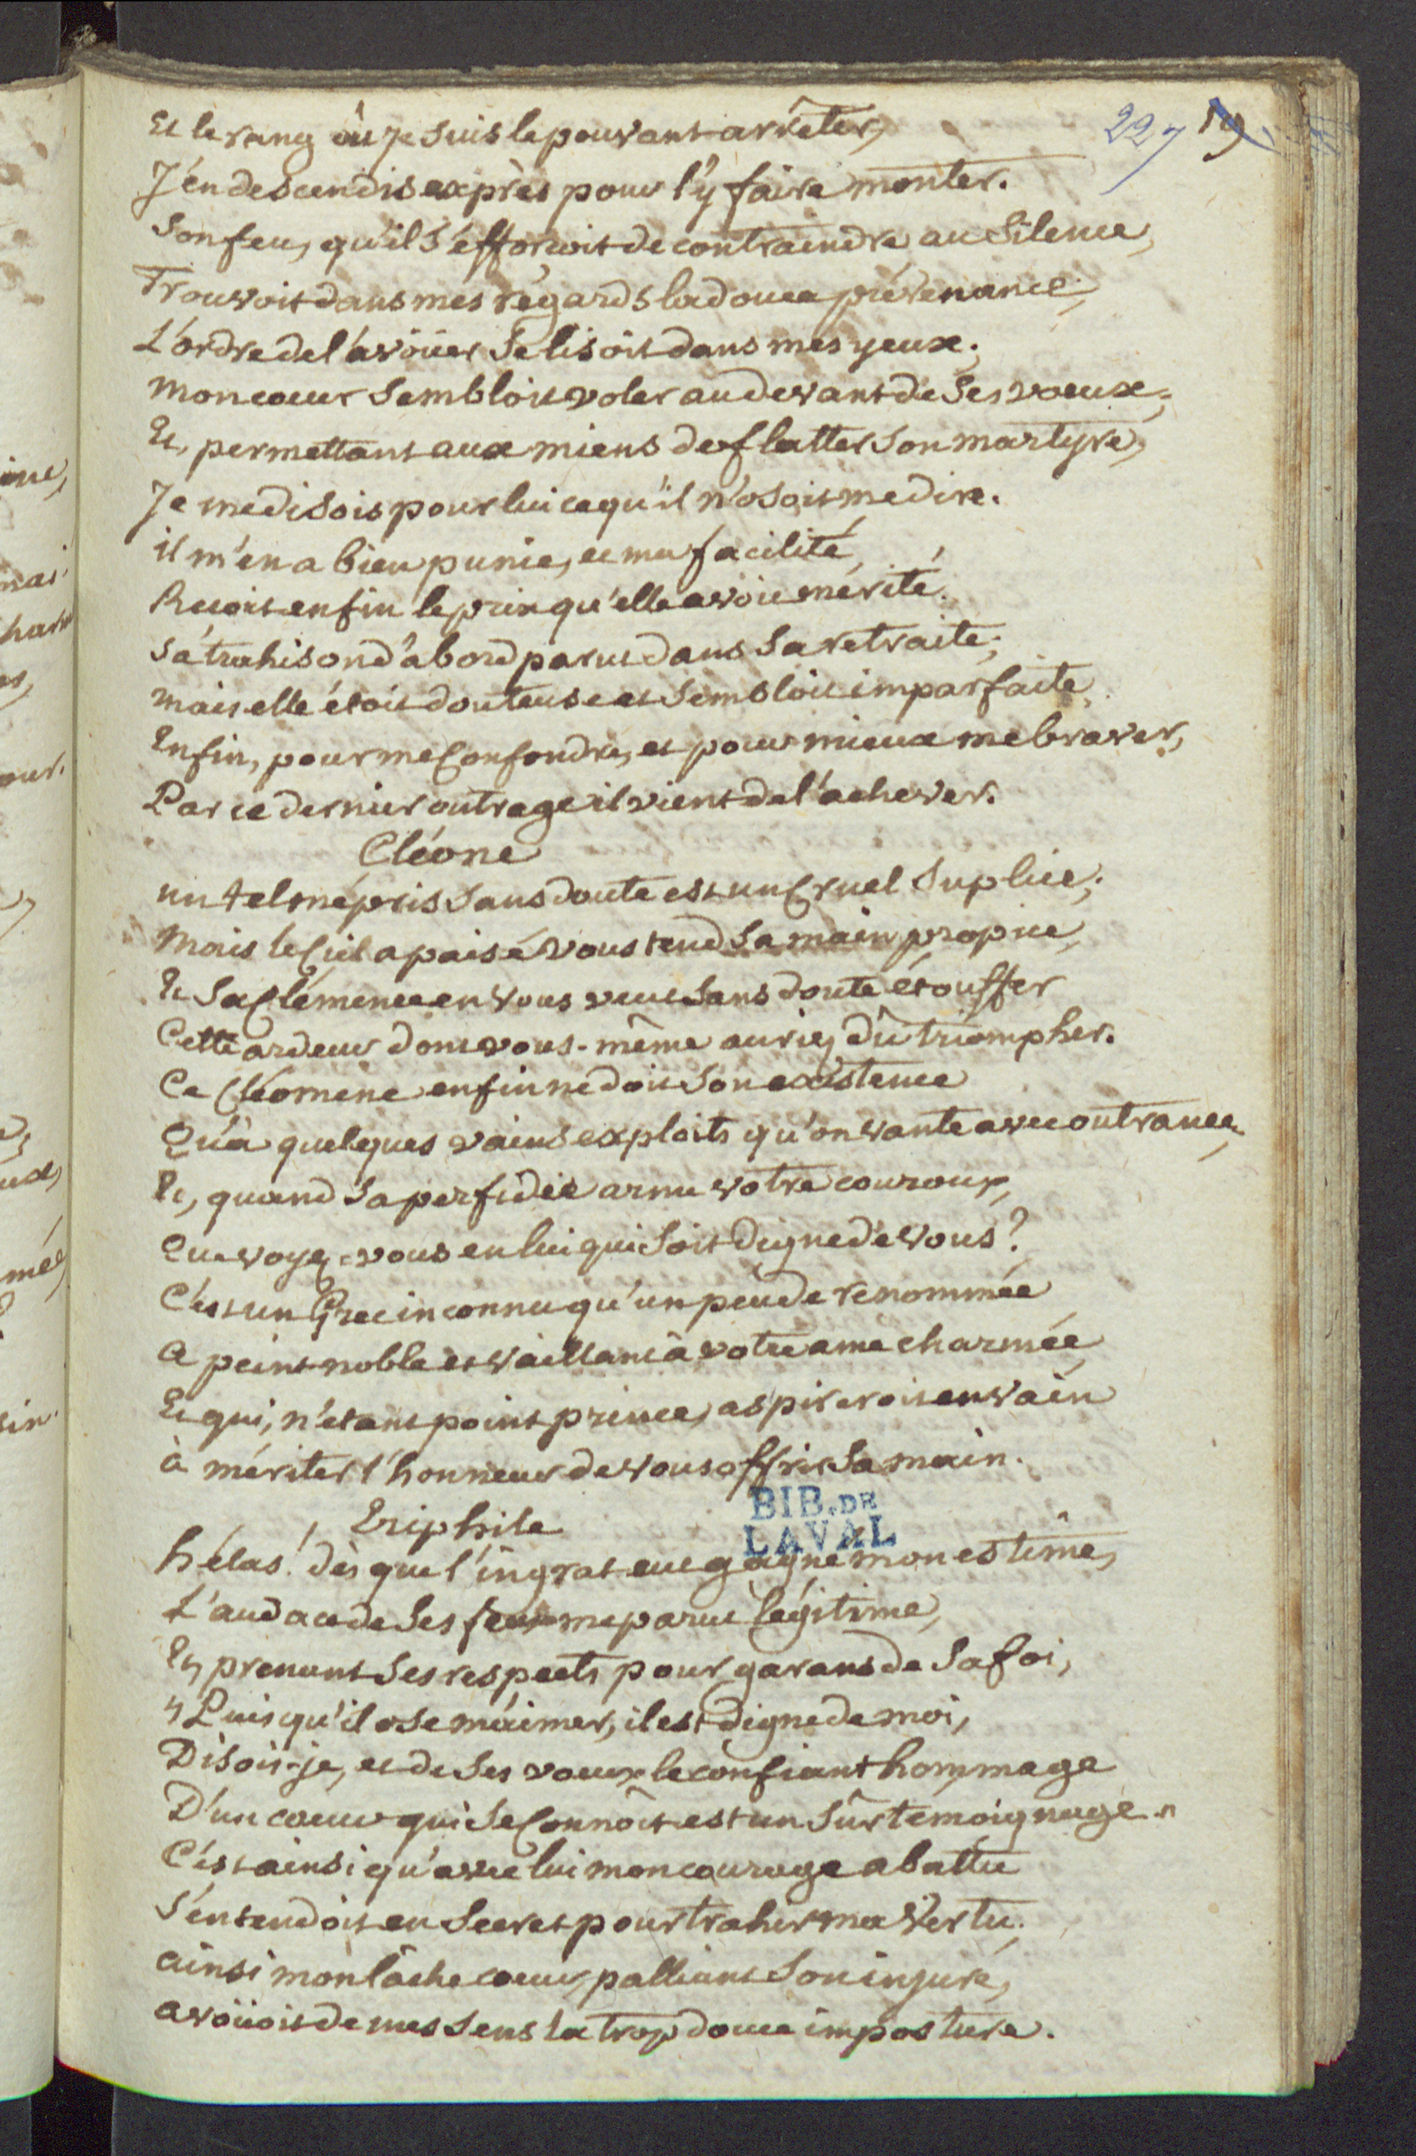 227 19
Et le rang où je suis le pouvant arrêter,
J'én descendis exprès pour l'y faire monter.
Son feu, qu'il s'efforcoit de contraindre au Silence,
Trouvoit dans mes régards la douce prévenance;
L'ordre de l'avoüer Se lisoit dans mes yeux;
mon coeur Sembloit voler au devant de Ses voeux;
Et, permettant aux miens de flatter Son martyre,
Je me disois pour lui ce qu'il n'osoit me dire.
il m'en a bien punie, et ma facilité,
Recoit enfin le prix qu'elle avoit mérité.
Sa trahison d'abord parut dans Sa retraite;
mais elle étoit douteuse et Sembloit imparfaite
Enfin, pour me Confondre, et pour mieux me braver,
Par ce dernier outrage il vient de l'achever.
Cléone
un tel mépris Sans doute est un Cruel Suplice;
Mais le Ciel apaisé vous tend Sa main propice,
Et Sa Clémence en vous veut Sans doute étouffer
Cette ardeur dont vous-même auriez dû triompher.
Ce Cléomene enfin ne doit Son existence
Qu'à quelques vains exploits qu'on vante avec outrance,
Et, quand Sa perfidie arme votre couroux,
Que voyez-vous en lui qui Soit digne de vous?
C'est un Grec inconnu qu'un peu de renommée
A peint noble et vaillant à votre ame charmée
Et qui, n'étant point prince, aspireroit en vain
à mériter l'honneur de vous offrir Sa main.
BIB. DE
LAVAL
Eriphile
hélas! dès que l'ingrat eut gagné mon estime,
L'audace de Ses feux me parut légitime,
Et prenant Ses respects pour garans de Sa foi,
"Puis qu'il ose m'aimer, il est digne de moi,
Disois-je, et de Ses voeux le confiant hommage
D'un coeur qui Se Connoît est un Sûr témoignage."
C'est ainsi qu'avec lui mon courage abattu
S'entendoit en Secret pour trahir ma Vertu;
ainsi mon lâche coeur, palliant Son injure,
avoüoit de mes Sens la trop douce imposture.